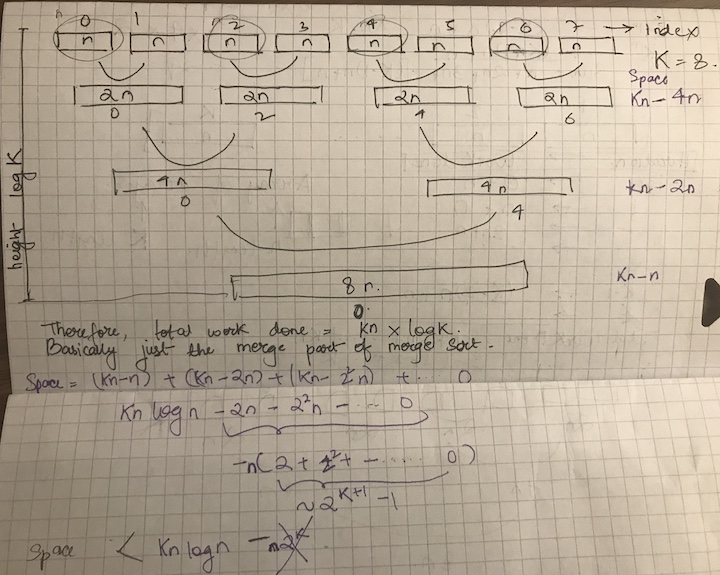 0 1 2 3 4 5 6 7 → index
n n n n n n n n K = 8.
Space
2n 2n 2n 2n Kn - 4n
0 2 4 6
height logK
4n 4n Kn - 2n
0 4
8n. Kn - n
0.
Therefore, total work done = Kn × logK.
Basically just the merge part of merge sort.
Space = (Kn-n) + (Kn-2n) + (Kn- 2²n) + ... 0
Kn logn - 2n - 2²n - ... 0
-n(2 + 2² + - ..... 0)
~2^K+1 - 1
Space < Kn logn - n2^K